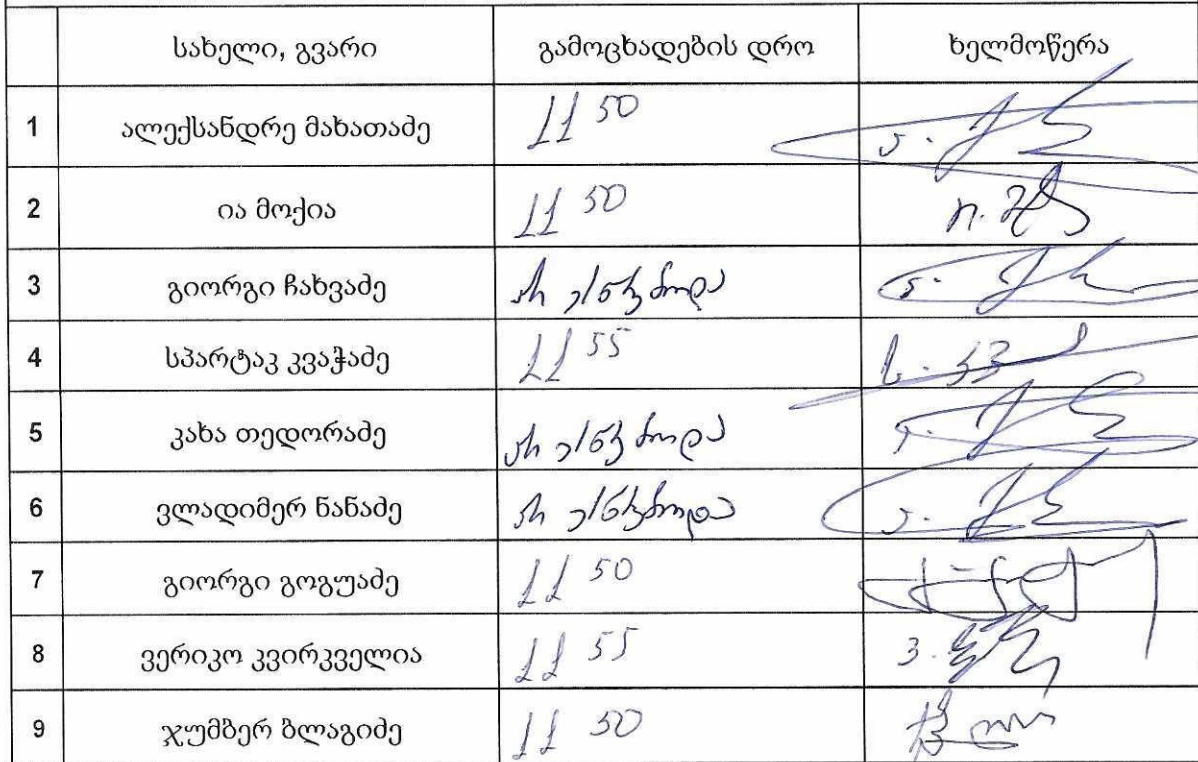 სახელი, გვარი გამოცხადების დრო ხელმოწერა
1 ალექსანდრე მახათაძე 11 50
2 ია მოქია 11 50
3 გიორგი ჩახვაძე არ
4 სპარტაკ კვაჭაძე 11 55
5 კახა თედორაძე არ
6 ვლადიმერ ნანაძე არ
7 გიორგი გოგუაძე 11 50
8 ვერიკო კვირკველია 11 55
9 ჯუმბერ ბლაგიძე 11 50